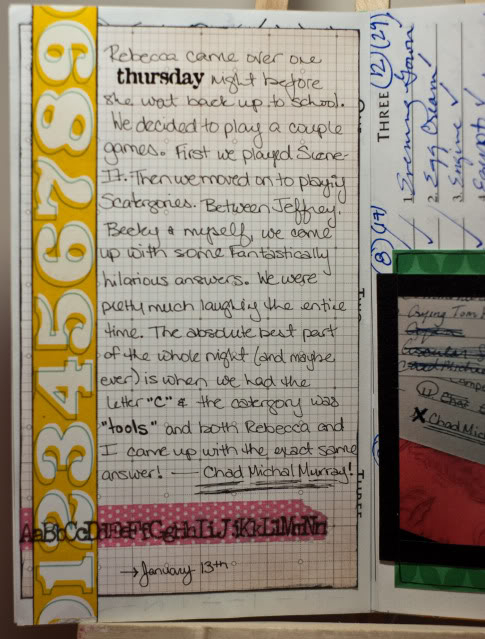 Rebecca came over one
thursday night before
she wat back up to school.
We decided to play a couple
games. First we played Scene-
It. Then we moved on to playing
Scatergories. Between Jeffrey,
Becky & myself, we came
up with some Fantastically
hilarious answers. We were
pretty much laughing the entire
time. The absolute best part
of the whole night (and maybe
ever) is when we had the
letter "C" & the catergory was
"tools" and both Rebecca and
I came up with the exact same
answer! — Chad Michal Murray!
AaBbCcDdEeFfGgHhIiJjKkLlMmNn
→ January 13th
0123456789
THREE (12)(29)
1. Evening Gown
2. Egg Cream!
3. Engine ✓
4.
(8) (17)
Crying Tom
X Chad Mic
THREE